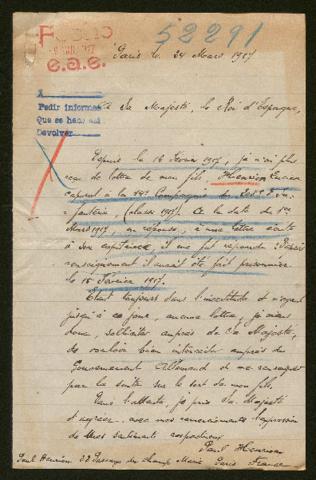 52291
e.a.e.
Paris le 24 Mars 1917
Pedir informes
Que se hace así
Devolver
A Sa Majesté, le Roi d'Espagne,
Depuis le 16 Février 1917, je n'ai plus
reçu de lettre de mon fils, Henrion Lucien
caporal à la Compagnie
fanterie, (classe 1917). A la date du 1er
Mars 1917, en réponse, à une lettre écrite
à son capitaine, il me fut répondu:
renseignement il aurait été fait prisonnier
le 15 Février 1917.
Etant toujours dans l'incertitude et n'ayant
jusqu'à ce jour, aucune lettre, je viens
donc, solliciter auprès de Sa Majesté,
de vouloir bien intercéder auprès du
Gouvernement Allemand et me renseigner
par la suite sur le sort de mon fils.
Dans l'attente, je prie Sa Majesté
d'agréer, avec mes remerciements l'expression
de mes sentiments respectueux
Paul Henrion
Paul Henrion 32 Passage du Champ Marie Paris France